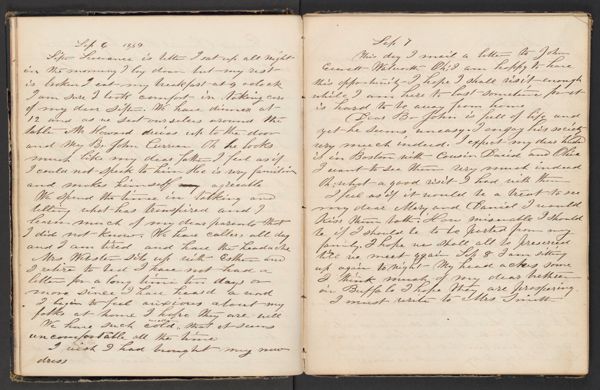 Sep 6 1859
Sister Lurance is better I sat up all night
in the morning I lay down but my rest
is broken I eat my breakfast at 9 oclock
I am sure I took comfort in taking care
of my dear Sister. We have dinner at
12 and as we seat ourselves around the
table Mr Howard drives up to the door
and My Br John Oh he looks
much like my dear father I feel as if
I could not speak to him He is very familiar
and makes himself agreeable
We spend the time in talking and
telling what has transpired and I
learn much of my dear parents that
I did not know. We have callers all day
and I am tired and have the headache
Mrs. Webster sits up with Esther and
I retire to bed I have not had a
letter for a long time ten days or
more since I have heard a word
I begin to feel anxious about my
folks at home I hope they are well
We have such cold weather that it seems
uncomfortable all the time
I wish I had brought my new
dress
Sep 7
This day I mail a letter to John
I am happy to have
this opportunity I hope I shall visit enough
while I am here to last sometime for it
is hard to be away from home
Dear Br John is full of life and
yet he seems uneasy. I enjoy his society
very much indeed. I expect my dear
is in Boston with Cousin David and Olive
I want to see them very much indeed
Oh what a good visit I had with them
I feel as if it would be a treat to see
my dear Mary and Daniel I would
kiss them both. How miserable I should
be if I should be to be parted from my
family. I hope we shall all be preserved
till we meet again Sep 8 I am sitting
up again tonight My head aches some
I think much of my dear brethren
in Buffalo I hope they are prospering
I must write to Mrs Smith